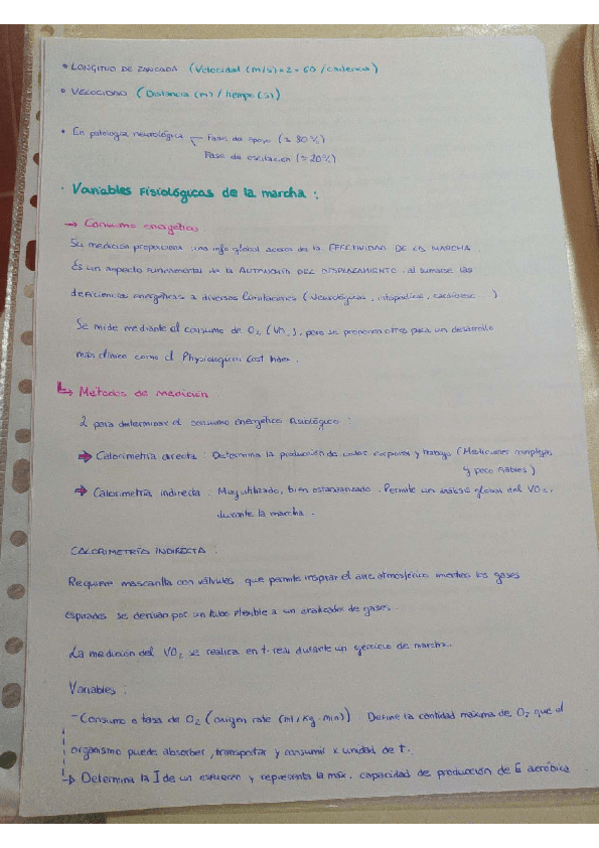 • LONGITUD DE ZANCADA (Velocidad (m/s) × 2 × 60 / cadencia)
• VELOCIDAD (Distancia (m) / tiempo (s))
• En patología neurológica Fase de apoyo (≈ 80%)
Fase de oscilación (≈ 20%)
· Variables Fisiológicas de la marcha :
→ Consumo energético
Su medición proporciona una info global acerca de la EFECTIVIDAD DE LA MARCHA.
Es un aspecto fundamental de la AUTONOMÍA DEL DESPLAZAMIENTO, al sumarse las
deficiencias energéticas a diversas limitaciones (Neurológicas, ortopédicas, cardioresc...)
Se mide mediante el consumo de O₂ , pero se proponen otros para un desarrollo
más clínico como el Physiological Cost Index.
↳ Métodos de medición
2 para determinar el consumo energético fisiológico :
→ Calorimetría directa : Determina la producción de calor corporal y trabajo (Mediciones complejas
y poco fiables)
→ Calorimetría indirecta : Muy utilizado, bien estandarizado. Permite un análisis global del VO₂
durante la marcha.
CALORIMETRÍA INDIRECTA :
Requiere mascarilla con válvulas que permite inspirar el aire atmosférico mientras los gases
espirados se derivan por un tubo flexible a un analizador de gases.
La medición del VO₂ se realiza en t. real durante un ejercicio de marcha.
Variables :
- Consumo o tasa de O₂ (oxigen rate (ml/kg·min)) Define la cantidad máxima de O₂ que el
organismo puede absorber, transportar y consumir x unidad de t.
↳ Determina la I de un esfuerzo y representa la máx. capacidad de producción de E aeróbica